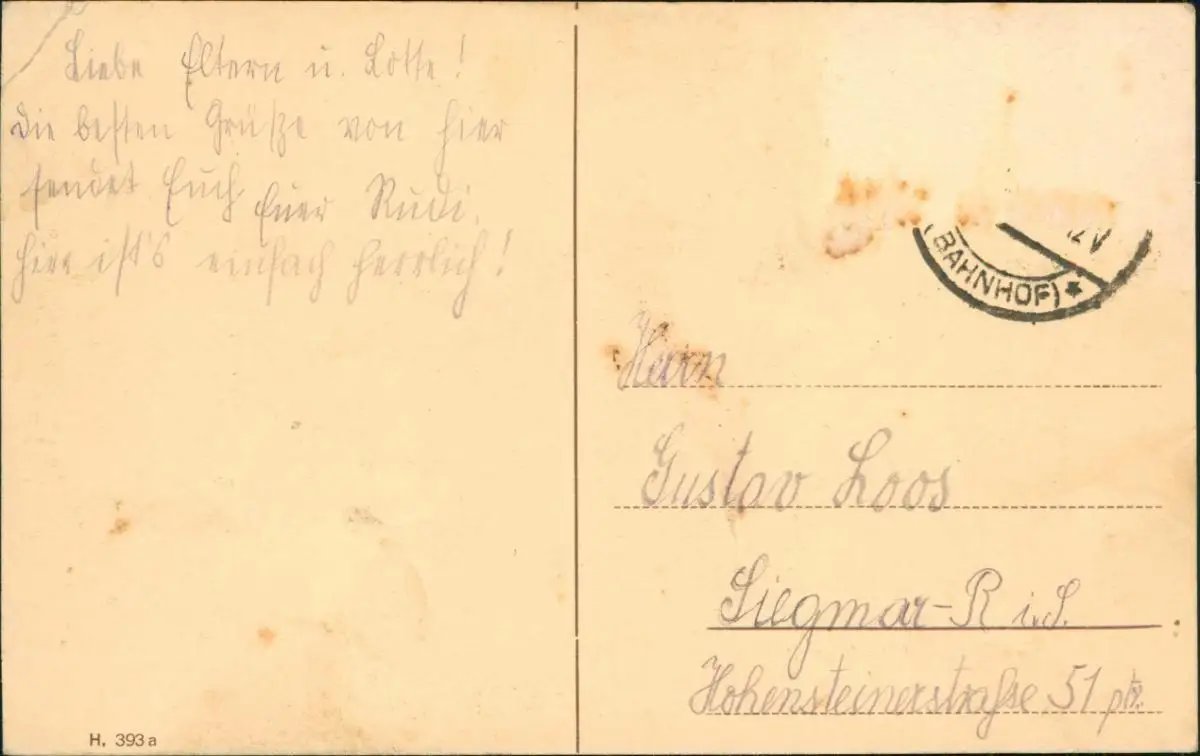 Liebe Eltern u. Lotte!
Die besten Grüße von hier
sendet Euch Euer Rudi.
Hier ist's einfach herrlich!
H. 393a
(BAHNHOF) *
12 V
Herrn
Gustav Loos
Siegmar-R i. S.
Hohensteinerstraße 51 ptr.